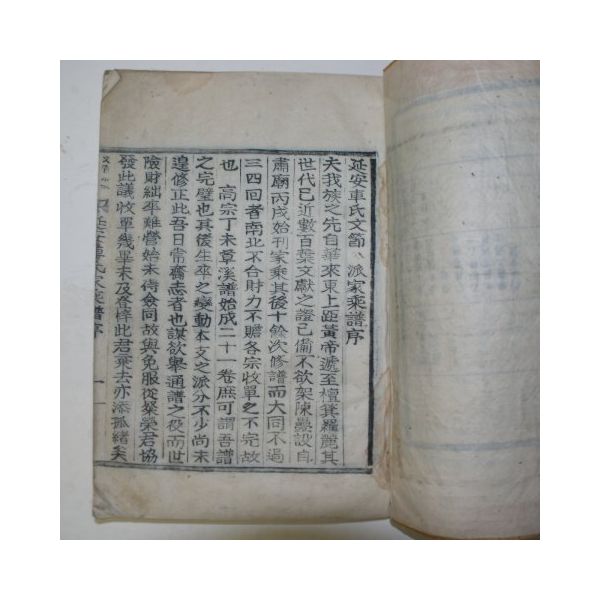 延安車氏文節公派家乘譜序
夫我族之先自華來東上距黃帝遞至檀箕羅麗其
世代已近數百葉文獻之證已備不欲架陳疊設自
肅廟丙戌始刊家乘其後十餘次修譜而大同不過
三四回者南北不合財力不贍各宗收單之不完故
也 高宗丁未章溪譜始成二十一卷庶可謂吾譜
之完璧也其後生卒之變動本支之派分不少尚未
遑修正此吾日常齎志者也謀欲擧通譜之役而世
險財絀卒難營始未待僉同故與免服從粲榮君協
發此議收單幾畢未及登梓此君棄去亦添孤緖矣
延安車氏家乘譜序 一